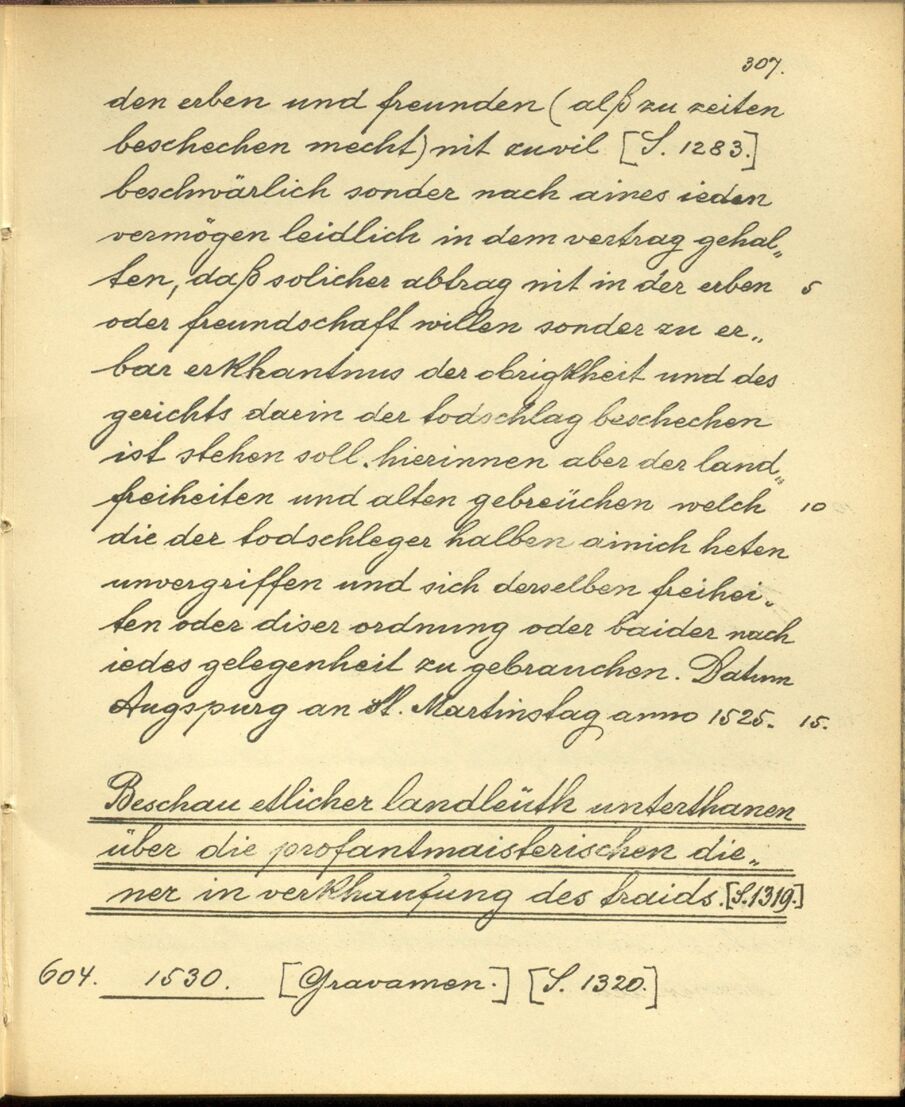 307.
den erben und freunden (alß zu zeiten
beschechen mecht) nit zuvil [S. 1283.]
beschwärlich sonder nach aines ieden
vermögen leidlich in dem vertrag gehal„
ten, daß solicher abtrag nit in der erben 5
oder freundschaft willen sonder zu er„
bar erkhantnus der obrigkheit und des
gerichts darin der todschlag beschechen
ist stehen soll. hierinnen aber der land„
freiheiten und alten gebreüchen welch 10
die der todschleger halben ainich heten
unvergriffen und sich derselben freihei„
ten oder diser ordnung oder baider nach
iedes gelegenheit zu gebrauchen. Datum
Augspurg an St. Martinstag anno 1525. 15.
Beschau etlicher landleüth unterthanen
über die profantmaisterischen die„
ner in verkhaufung des traids. [S. 1319.]
604. 1530. [Gravamen.] [S. 1320.]